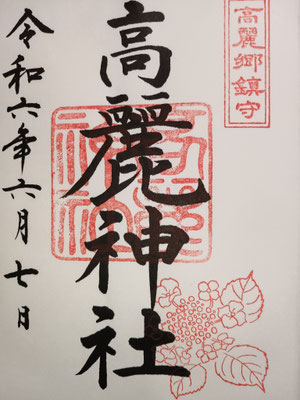 高麗郷鎮守
高麗神社
令和六年六月七日